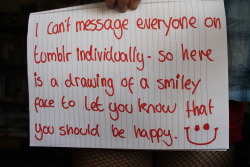 I can't message everyone on
tumblr individually - so here
is a drawing of a smiley
face to let you know that
you should be happy.